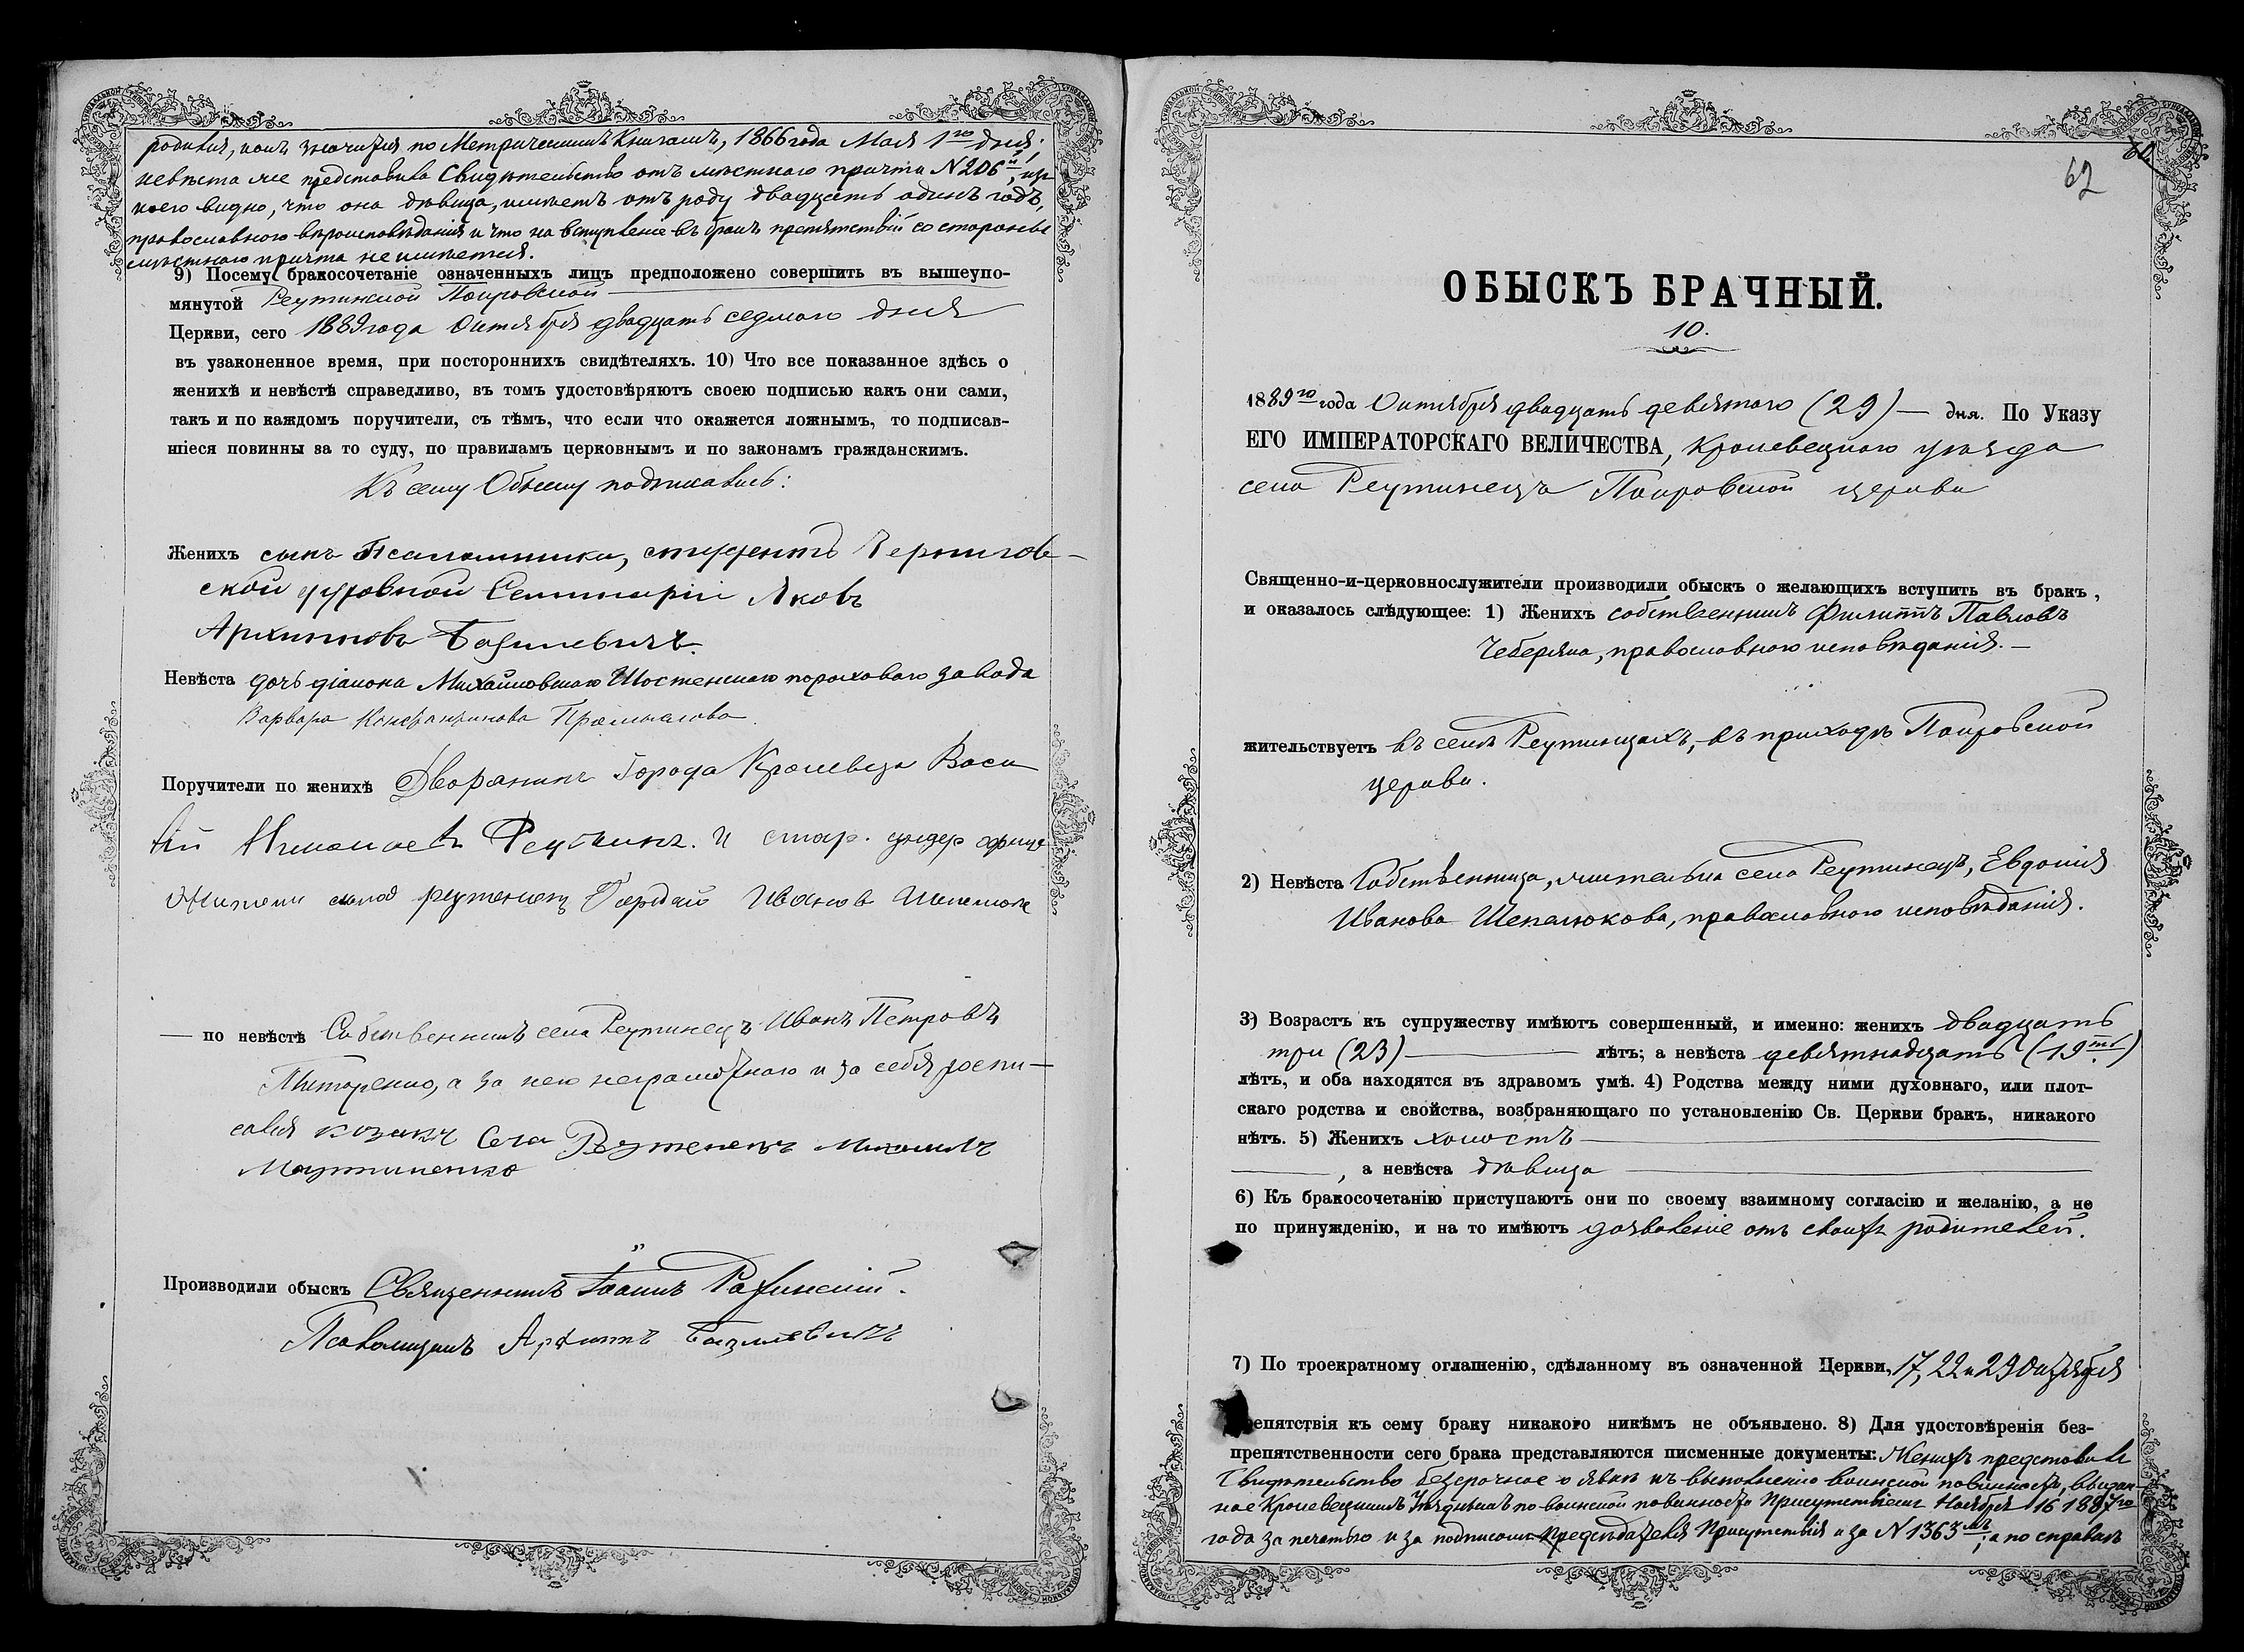 родился, какъ значится по Метрическимъ Книгамъ, 1866 года Мая 1го дня;
невѣста же представила Свидѣтельство отъ мѣстнаго причта N 206й, изъ
коего видно, что она дѣвица, имѣетъ отъ роду двадцать одинъ годъ,
православнаго вѣроисповѣданія и что на вступленіе въ бракъ препятствій со стороны
мѣстнаго причта не имѣется.
9) Посему бракосочетаніе означенныхъ лицъ предположено совершить въ вышеупо-
мянутой Реутинской Покровской
Церкви, сего 1889 года Октября двадцать седмаго дня
въ узаконенное время, при постороннихъ свидѣтеляхъ. 10) Что все показанное здѣсь о
женихѣ и невѣстѣ справедливо, въ томъ удостовѣряютъ своею подписью какъ они сами,
такъ и по каждомъ поручители, съ тѣмъ, что если что окажется ложнымъ, то подписав-
шіеся повинны за то суду, по правиламъ церковнымъ и по законамъ гражданскимъ.
Къ сему Обыску подписались:
Женихъ сынъ Псаломщика, студентъ Чернигов-
ской духовной Семинаріи Яковъ
Архиповъ Базилевичъ.
Невѣста дочь діакона Михайловскаго Шостенскаго пороховаго завода
Варвара Константинова
Поручители по женихѣ Дворянинъ города Кролевца Васи
лій Николаевъ и стар. ундер офице
жители села реутенец Гордей Иванов Шекалюк
— по невѣстѣ Собственникъ села Реутинецъ Иванъ Петровъ
Титаренко, а за него неграмотнаго и за себя роспи-
сался козакъ села Реутенець Михаилъ
Мартиненко
Производили обыскъ Священникъ Іоаннъ
Псаломщикъ Архиппъ Базилевичъ
60.
62
ОБЫСКЪ БРАЧНЫЙ.
10.
1889го года Октября двадцать девятаго (29) — дня. По Указу
ЕГО ИМПЕРАТОРСКАГО ВЕЛИЧЕСТВА, Кролевецкаго уѣзда
села Реутинецъ Покровской церкви
Священно-и-церковнослужители производили обыскъ о желающихъ вступить въ бракъ,
и оказалось слѣдующее: 1) Женихъ собственникъ Филиппъ Павловъ
Чеберяка, православнаго исповѣданія. —
жительствуетъ въ селѣ Реутинцахъ, въ приходѣ Покровской
церкви.
2) Невѣста Собственница, жителька села Реутинецъ, Евдокія
Иванова Шекалюкова, православнаго исповѣданія.
3) Возрастъ къ супружеству имѣютъ совершенный, и именно: женихъ двадцать
три (23) — лѣтъ; а невѣста девятнадцать (19ть)
лѣтъ, и оба находятся въ здравомъ умѣ. 4) Родства между ними духовнаго, или плот-
скаго родства и свойства, возбраняющаго по установленію Св. Церкви бракъ, никакого
нѣтъ. 5) Женихъ холостъ
, а невѣста дѣвица
6) Къ бракосочетанію приступаютъ они по своему взаимному согласію и желанію, а не
по принужденію, и на то имѣютъ дозволеніе отъ своихъ родителей.
7) По троекратному оглашенію, сдѣланному въ означенной Церкви, 17, 22 и 29 Октября
препятствія къ сему браку никакого никѣмъ не объявлено. 8) Для удостовѣренія без-
препятственности сего брака представляются писменные документы: Женихъ представилъ
Свидѣтельство безсрочное о явкѣ къ выполненію воинской повинности, выдан-
ное Кролевецкимъ Уѣзднымъ по воинской повинности Присутствіемъ Ноября 16 1887го
года за печатью и за подписомъ Предсѣдателя Присутствія и за N 1363мъ; а по справкѣ